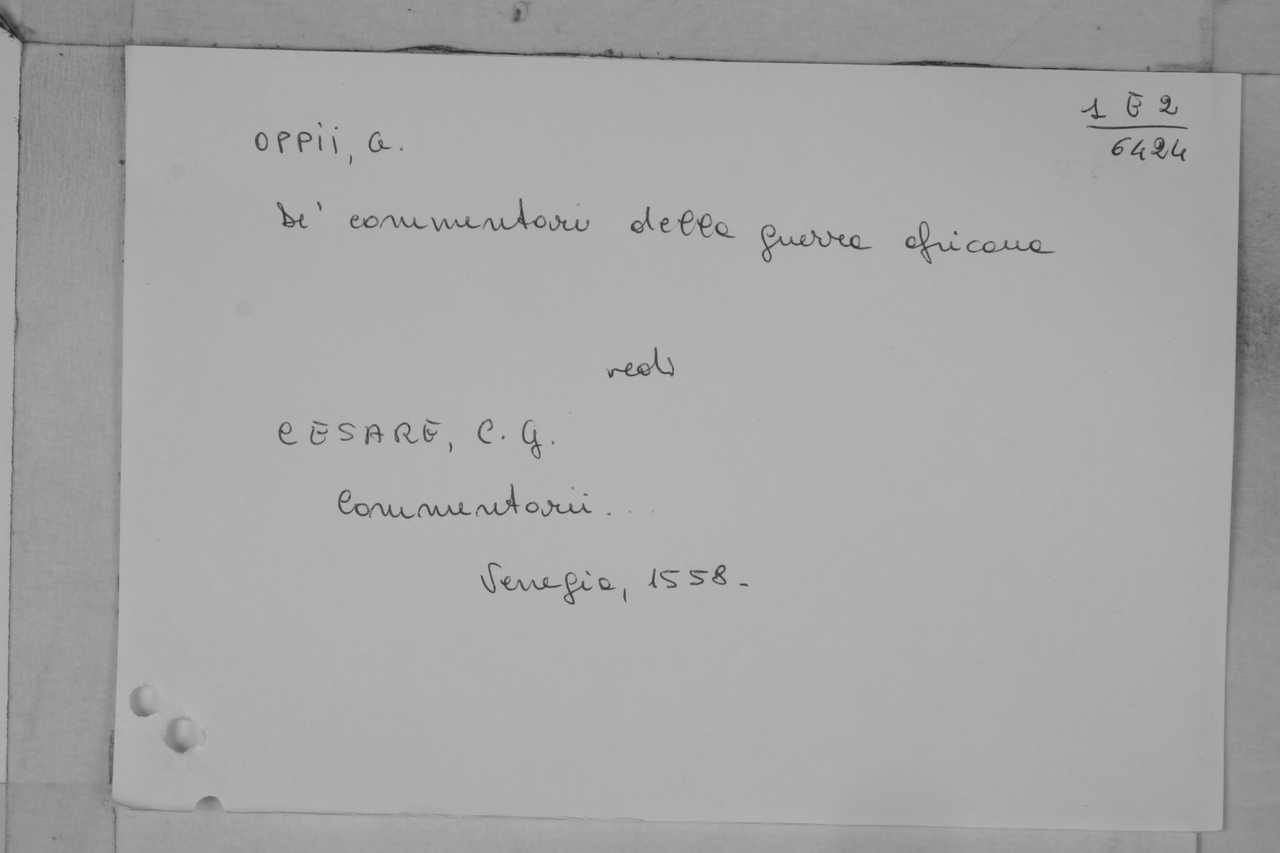 1 E 2
6424
OPPii, G.
De' commentari della guerra africana
vedi
CESARE, C. G.
Commentarii...
Venegia, 1558.-